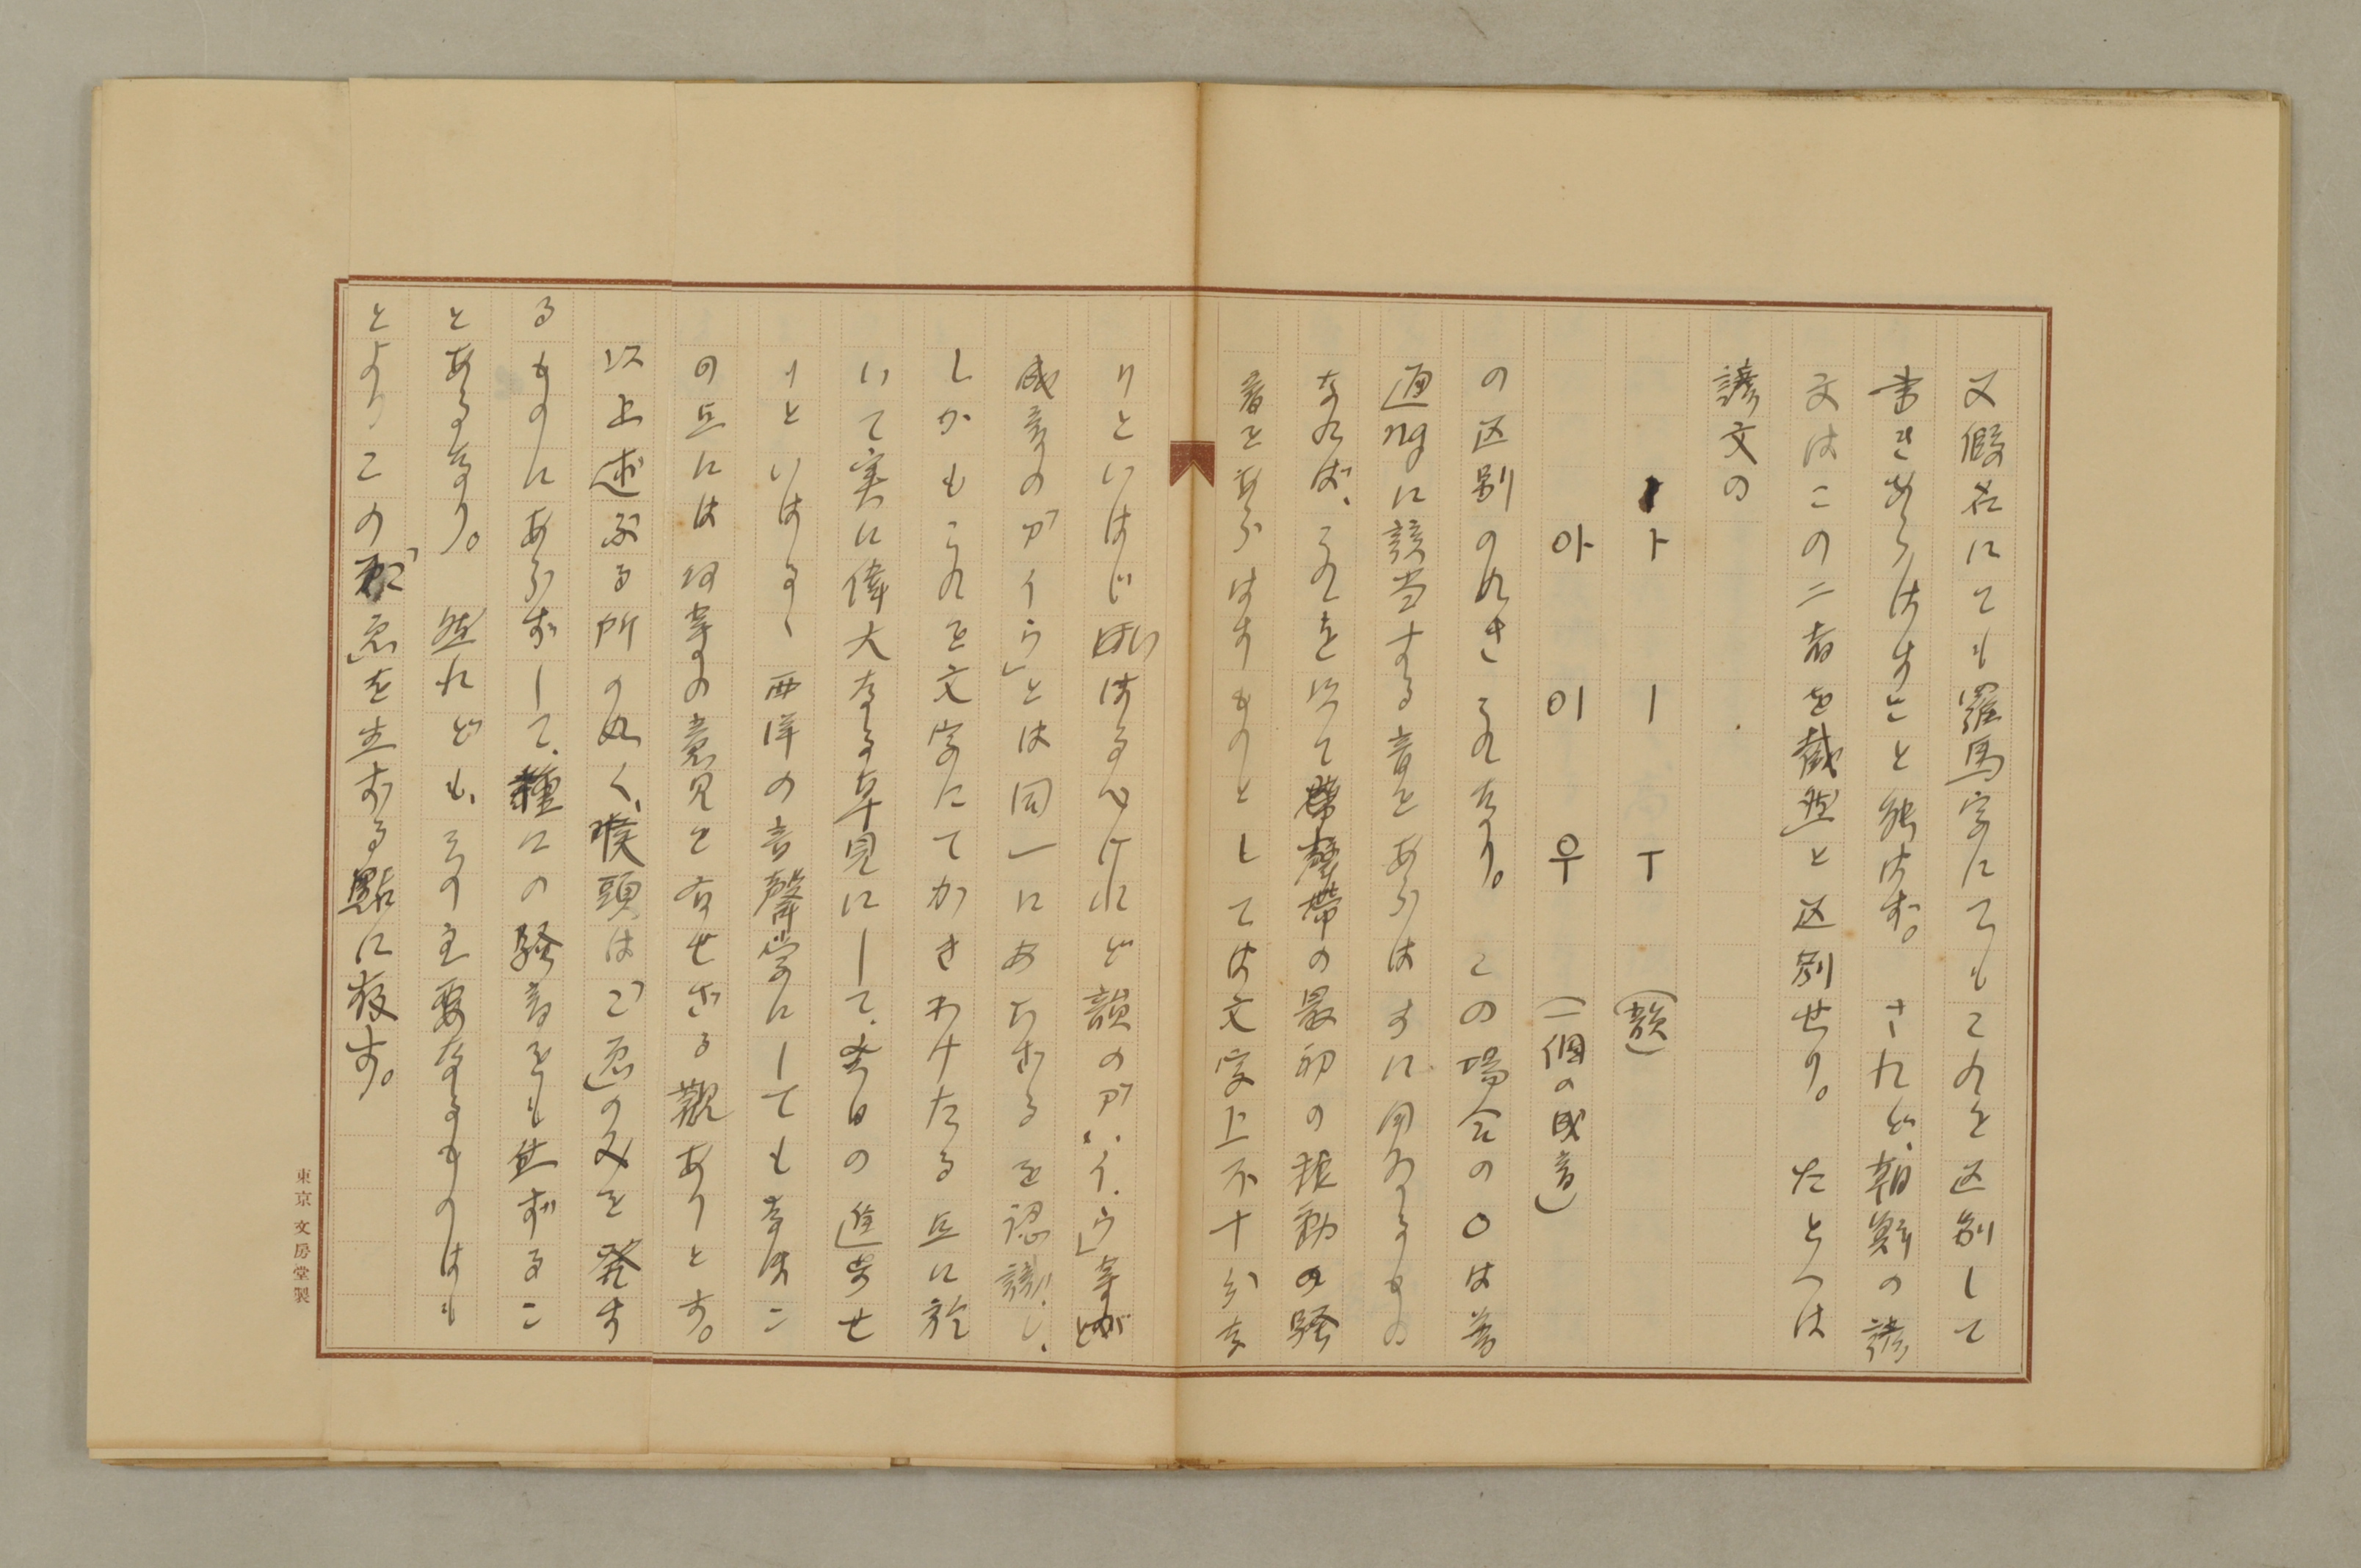 又假名にても羅馬字にてもこれを区別して
書きあらはすこと能はず。されど、朝鮮の諺
文はこの二者を截然と区別せり。たとへは
諺文の
ㅏ ㅣ ㅜ (韻)
아 이 우 (一個の成音)
の区別の如きこれなり。この場合の〇は普
通ngに該当する音をあらはすに用ゐるもの
なれば、これを以て聲帶の最初の振動の騒
音をあらはすものとしては文字上不十分な
りといはじいはるべけれど韻の「ア、イ、ウ」等が
成音の「アイウ」とは同一にあらざるを認識し、
しかもこれを文字にてかきわけたる点に於
いて実に偉大なる卓見にして、今日の進歩せ
りといはるゝ西洋の音聲学にしてもなほこ
の点には何等の意見を有せざる観ありとす。
以上述ぶる所の如く、喉頭は「こゑ」のみを発す
るものにあらずして、種〻の騒音をも生ずるこ
とあるなり。然れども、その主要なるものはも
とよりこの「こゑ」を生ずる點に存す。
東京 文房堂製